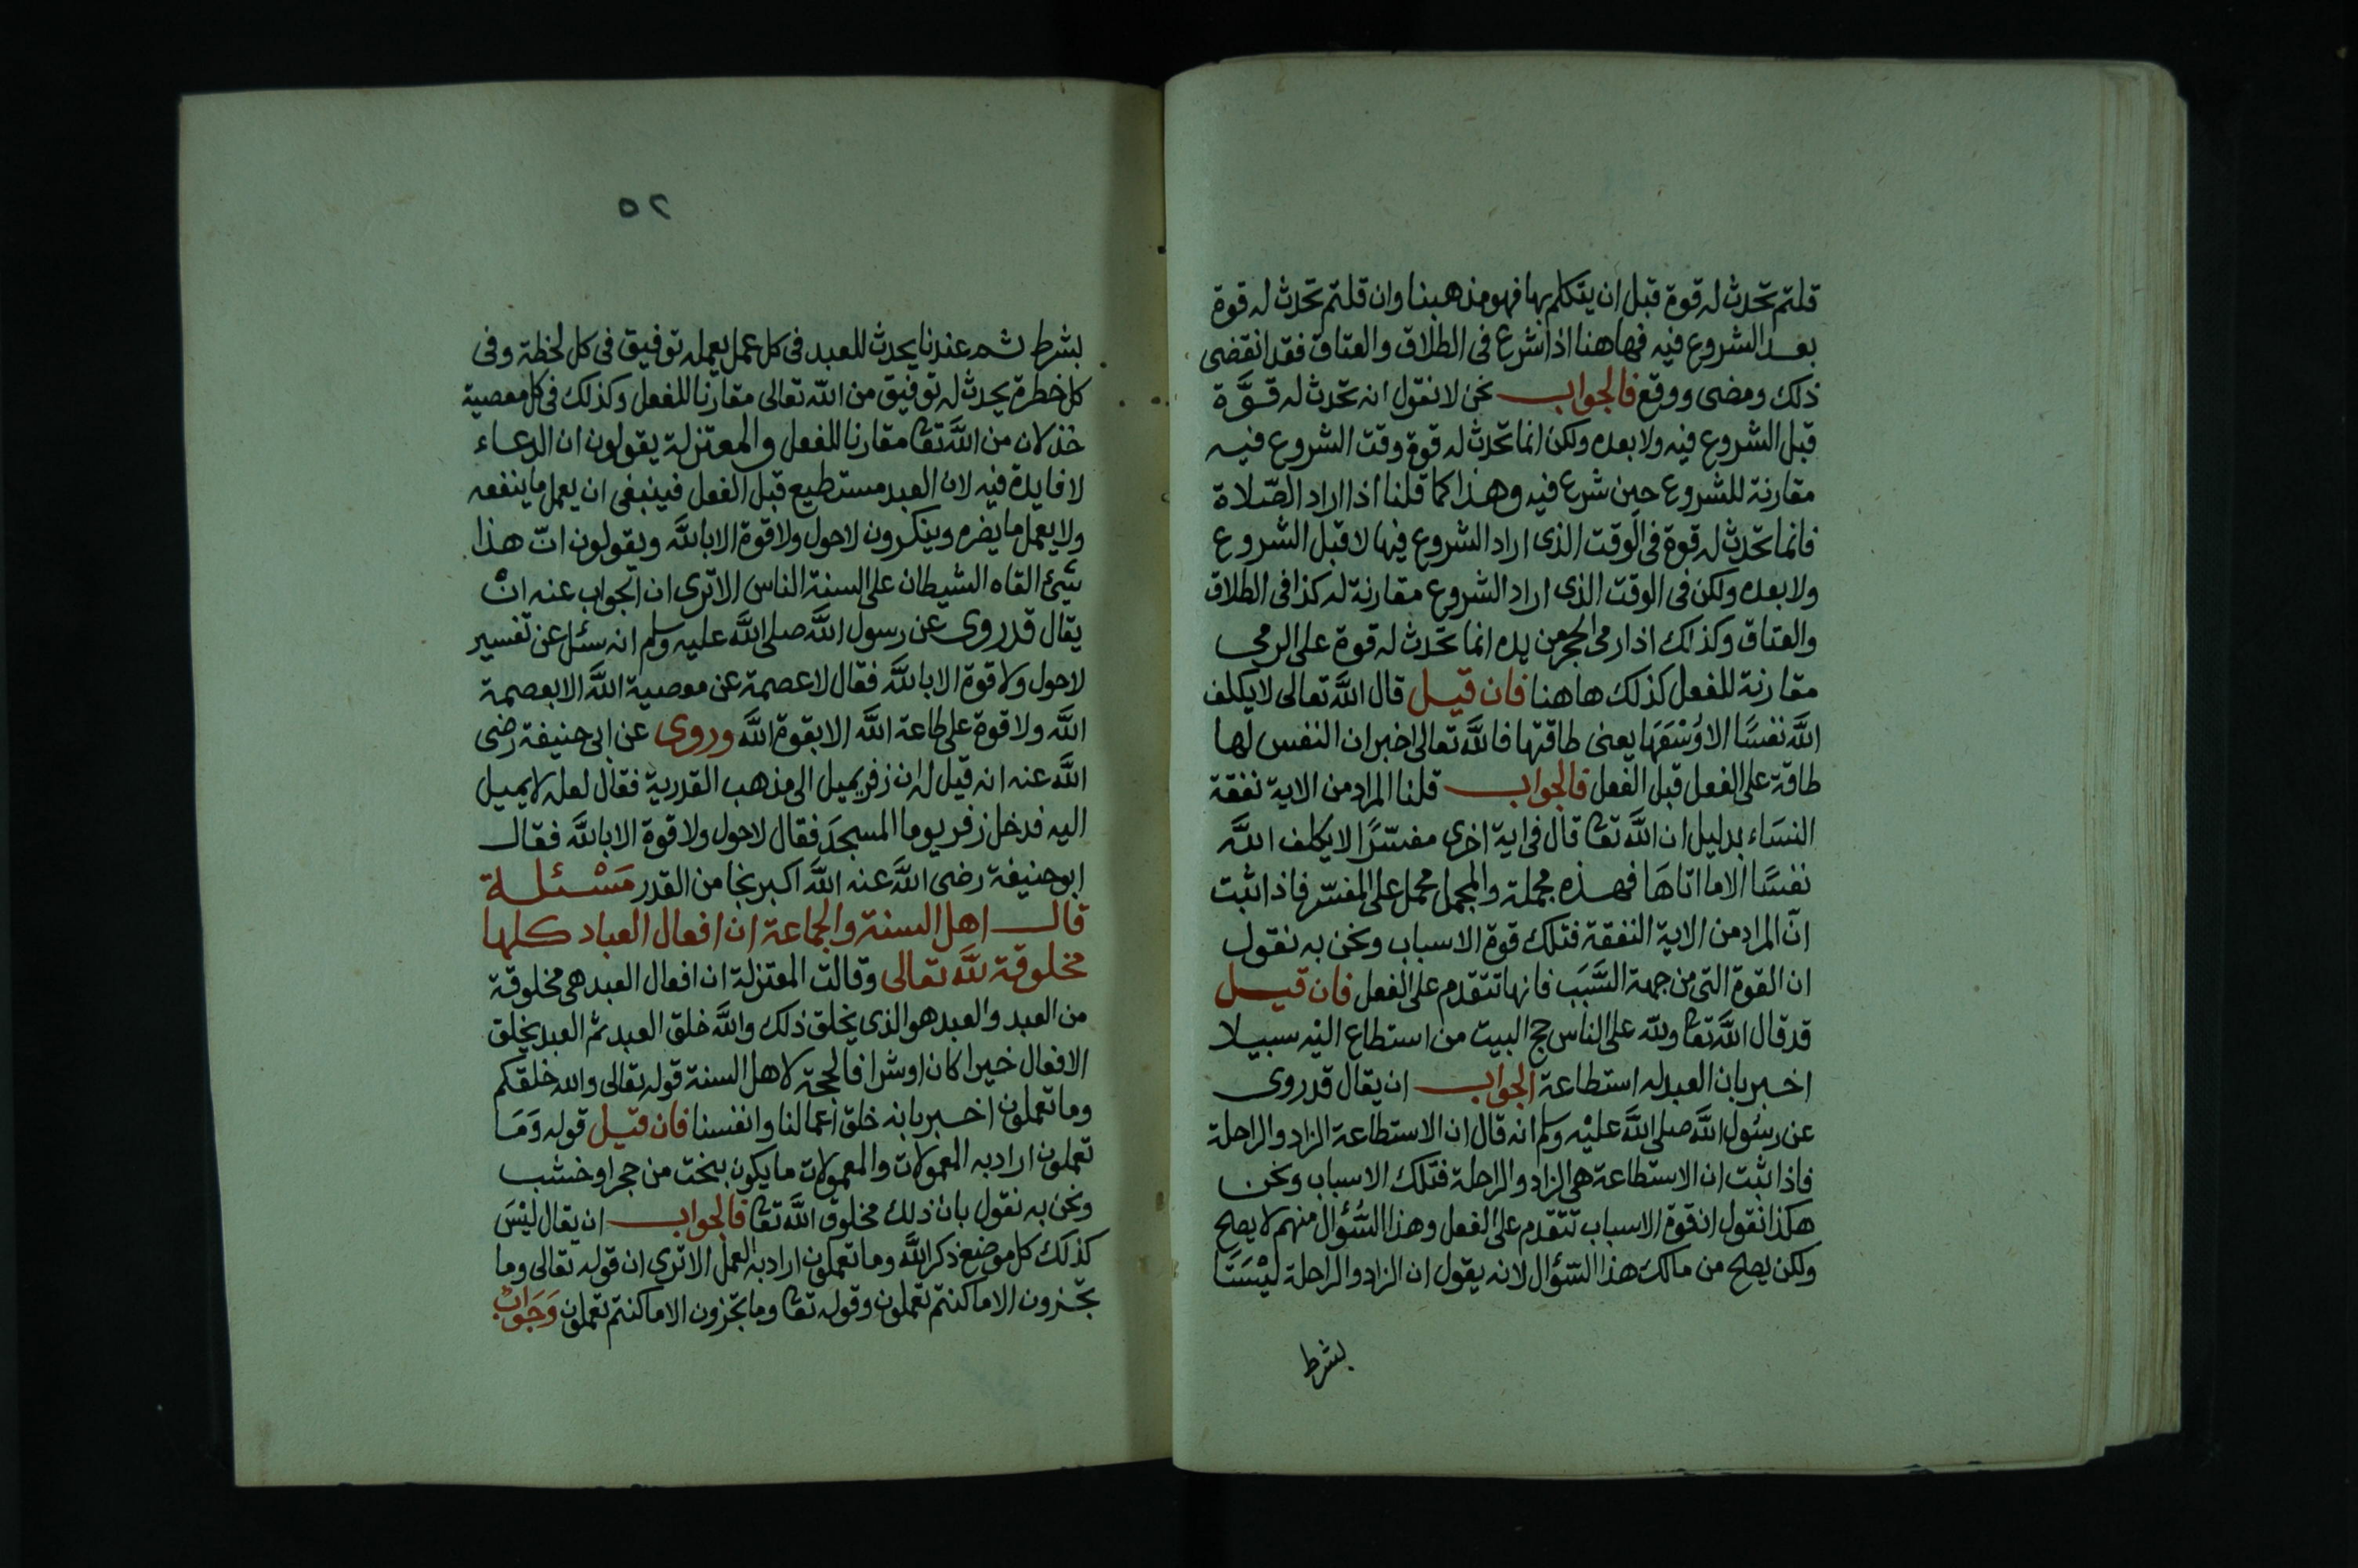 قلتم تحدث له قوة قبل ان يتكلم بها فهو مذهبنا وان قلتم تحدث له قوة
بعد الشروع فيه فهاهنا اذا شرع فى الطلاق والعتاق فقد انقضى
ذلك ومضى ووقع فالجواب نحن لا نقول انه تحدث له قوَّة
قبل الشروع فيه ولا بعده ولكن انما تحدث له قوة وقت الشروع فيه
مقارنة للشروع حين شرع فيه وهذا كما قلنا اذا اراد الصّلاة
فانما تحدث له قوة فى الوقت الذى اراد الشروع فيها لا قبل الشروع
ولا بعده ولكن فى الوقت الذى اراد الشروع مقارنة له كذا فى الطلاق
والعتاق وكذلك اذا رمى الحجر من يده انما تحدث له قوة على الرمى
مقارنة للفعل كذلك هاهنا فان قيل قال اللَّه تعالى لا يكلف
اللَّه نفسًا الا وُسْعَهَا يعنى طاقتها فاللَّه تعالى اخبر ان النفس لها
طاقة على الفعل قبل الفعل فالجواب قلنا المراد من الاية نفقة
النسَاء بدليل ان اللَّه تعا قال فى اية اخرى مفسّرًا لا يكلف اللَّه
نفسًا الا ما اتاهَا فهذه مجملة والمجمل محمل على المفسّر فاذا ثبت
انّ المراد من الاية النفقة فتلك قوة الاسباب ونحن به نقول
ان القوة التى من جهة السَّبَب فانها تتقدم على الفعل فان قيل
قد قال اللَّه تعا ولله على الناس حج البيت من استطاع اليْه سبيلا
اخبر بان العبد له استطاعة الجواب ان يقال قد روى
عن رسُول اللَّه صلى اللَّه عليْه وسلم انه قال ان الاستطاعة الزاد والراحلة
فاذا ثبت ان الاستطاعة هى الزاد والراحلة فتلك الاسباب ونحن
هكذا نقول ان قوة الاسباب تتقدم على الفعل وهذا السُّؤال منهم لا يصلح
ولكن يصلح من مالك هذا السّؤال لانه يقول ان الزاد والراحلة ليْسَتَا
بشرط
٢٥
بشرط ثم عندنا يحدث للعبد فى كل عمل يعمله توفيق فى كل لحظة وفى
كل خطرة يحدث له توفيق من الله تعالى مقارنا للفعل وكذلك فى كل معصية
خذلان من اللَّه تعا مقارنا للفعل والمعتزلة يقولون ان الدعاء
لا فايدة فيه لان العبد مستطيع قبل الفعل فينبغى ان يعمل ما ينفعه
ولا يعمل ما يضره وينكرون لاحول ولا قوة الا باللَّه ويقولون انّ هذا
شئ القاه الشيطان على السنة الناس الا ترى ان الجواب عنه انْ
يقال قد روى عن رسول اللَّه صلى اللَّه عليه وسلم انه سئل عن تفسير
لاحول ولا قوة الا باللَّه فقال لا عصمة عن معصية اللَّه الا بعصمة
اللَّه ولا قوة على طاعة اللَّه الا بقوة اللَّه وروى عن ابى حنيفة رضى
اللَّه عنه انه قيل له ان زفر يميل الى مذهب القدرية فقال لعله لا يميل
اليه فدخل زفر يوما المسجدَ فقال لاحول ولا قوة الا باللَّه فقال
ابو حنيفة رضى اللَّه عنه اللَّه اكبر نجا من القدر مَسْئلة
قال اهل السنة والجماعة ان افعال العباد كلها
مخلوقة للَّه تعالى وقالت المعتزلة ان افعال العبد هى مخلوقة
من العبد والعبد هو الذى يخلق ذلك واللَّه خلق العبد ثم العبد يخلق
الافعال خيرا كان او شرا فالحجة لاهل السنة قوله تعالى والله خلقكم
وما تعملون اخبر بانه خلق اعمالنا وانفسنا فان قيل قوله وَمَا
تعملون اراد به المعمولات والمعمولات ما يكون بنحت من حجر او خشب
ونحن به نقول بان ذلك مخلوق اللَّه تعا فالجواب ان يقال ليْسَ
كذلك كل موضع ذكر اللَّه وما تعملون اراد به العمل الا ترى ان قوله تعالى وما
تجزون الا ما كنتم تعملون وقوله تعا وما تجزون الا ما كنتم تعملون وَجَوَابٌ